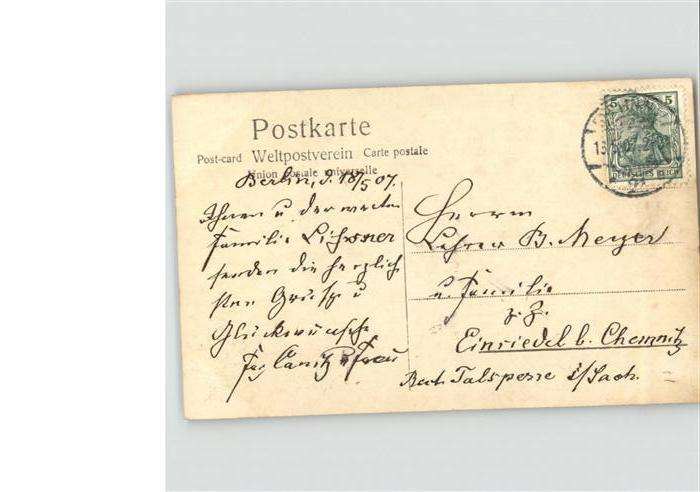 Postkarte
Post-card Weltpostverein Carte postale
Union postale universelle
Berlin, d. 18/5 07.
Ihnen u der werten
Familie
senden die herzlich
sten Grüße u
Glückwünsche
u Frau
Herrn
Lehrer B. Meyer
u. Familie
z. Z.
Einsiedel b. Chemnitz
Talsperre i/Sach.
5 5
DEUTSCHES REICH